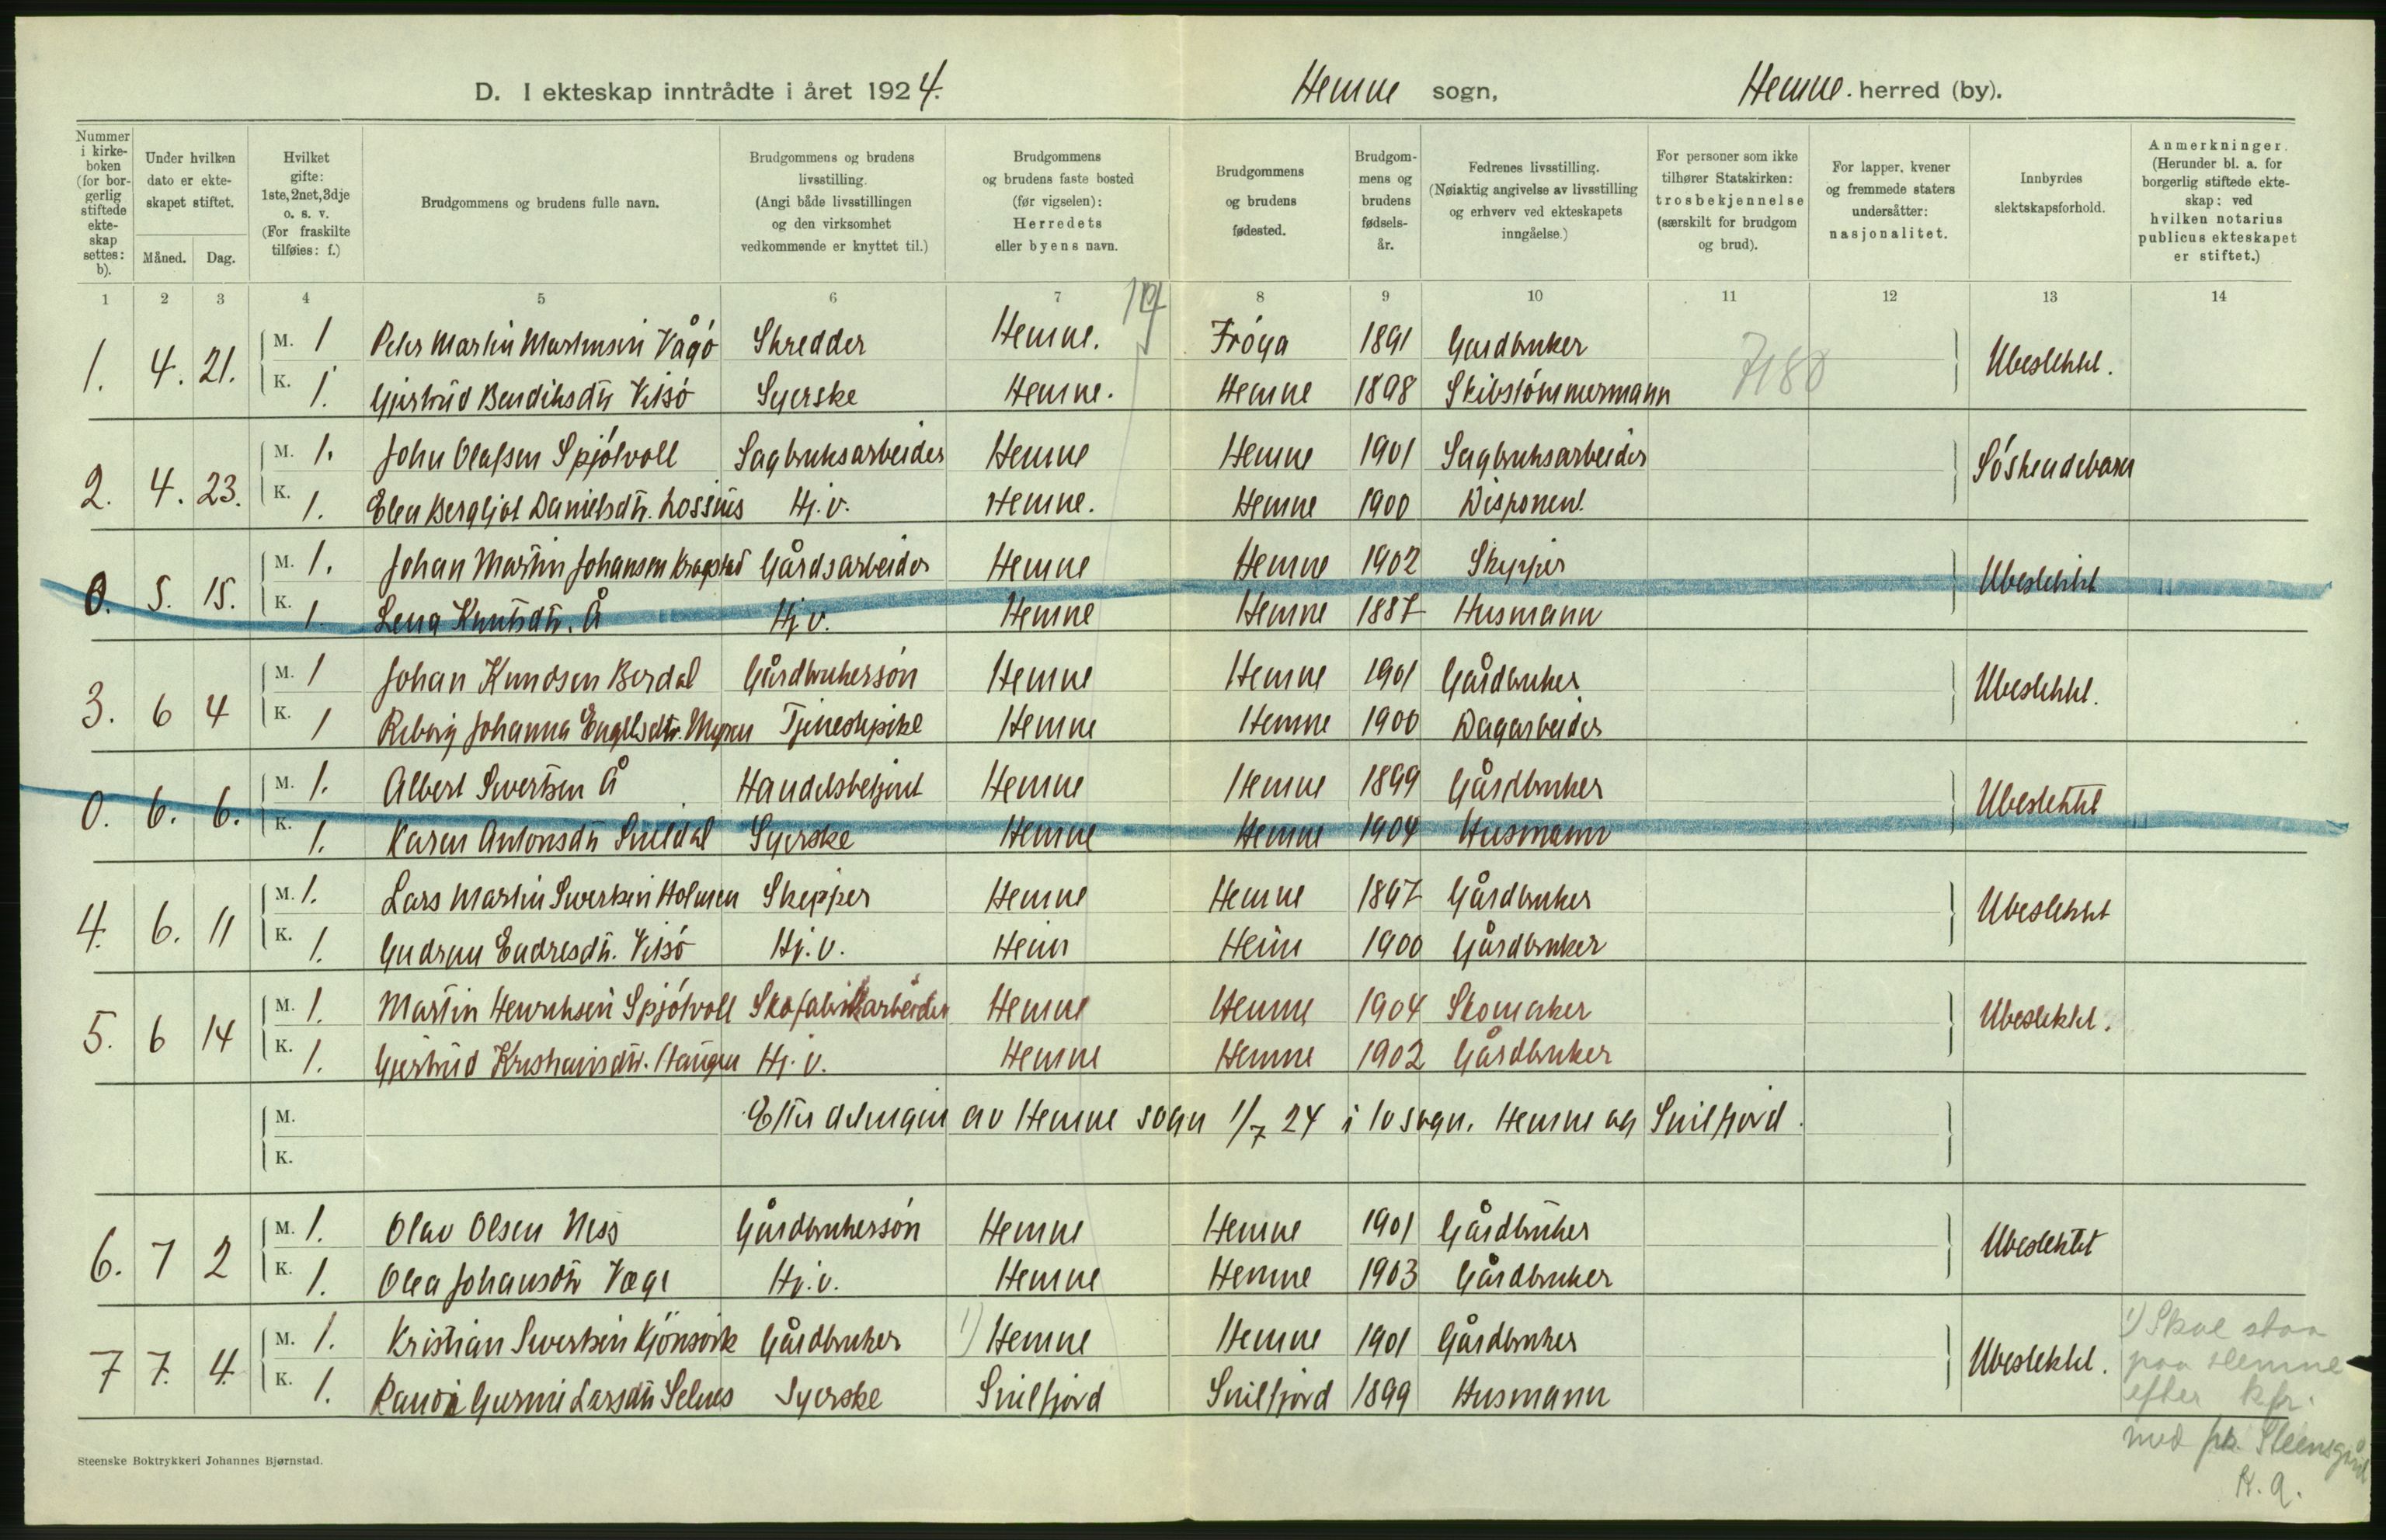 D. I ekteskap inntrådte i året 1924. Hemne sogn, Hemne. herred (by).
Nummer i kirkeboken (for borgerlig stiftede ekteskap settes: b).
Under hvilken dato er ekteskapet stiftet.
Måned. Dag.
Hvilket gifte: 1ste, 2net, 3dje o. s. v. (For fraskilte tilføies: f.)
Brudgommens og brudens fulle navn.
Brudgommens og brudens livsstilling. (Angi både livsstillingen og den virksomhet vedkommende er knyttet til.)
Brudgommens og brudens faste bosted (før vigselen): Herredets eller byens navn.
Brudgommens og brudens fødested.
Brudgommens og brudens fødselsår.
Fedrenes livsstilling. (Nøiaktig angivelse av livsstilling og erhverv ved ekteskapets inngåelse.)
For personer som ikke tilhører Statskirken: trosbekjennelse (særskilt for brudgom og brud).
For lapper, kvener og fremmede staters undersåtter: nasjonalitet.
Innbyrdes slektskapsforhold.
Anmerkninger. (Herunder bl. a. for borgerlig stiftede ekteskap: ved hvilken notarius publicus ekteskapet er stiftet.)
1 2 3 4 5 6 7 8 9 10 11 12 13 14
1. 4. 21. M. 1 Peter Martin Martinsen Vågø Skredder Hemne. Frøya 1891 Gardbruker 7180 Ubeslektet.
K. 1. Gjertrud Bendiksdtr Vitsø Syerske Hemne. Hemne 1898 Skibstømmermann
2. 4. 23. M. 1. John Olafsen Spjøtvoll Sagbruksarbeider Hemne Hemne 1901 Sagbruksarbeider Søskendebarn
K. 1. Elen Bergljot Danielsdtr. Lossius Hj.v. Hemne. Hemne 1900 Disponent.
0. 5. 15. M. 1. Johan Martin Johansen Krogstad Gårdsarbeider Hemne Hemne 1902 Skipper Ubeslektet
K. 1. Lena Knutsdtr. Å Hj.v. Hemne Hemne 1887 Husmann
3. 6 4 M. 1 Johan Knudsen Berdal Gårdbrukersøn Hemne Hemne 1901 Gårdbruker Ubeslektet.
K. 1 Johanna Engelsdtr. Myren Tjenestepike Hemne Hemne 1900 Dagarbeider
0. 6. 6. M. 1. Albert Sivertsen Å Handelsbetjent Hemne Hemne 1899 Gårdbruker Ubeslektet
K. 1. Karen Antonsdtr Snildal Syerske Hemne Hemne 1904 Husmann
4. 6. 11 M. 1. Lars Martin Sivertsen Holmen Skipper Hemne Hemne 1897 Gårdbruker Ubeslektet
K. 1. Gudrun Endresdtr. Vitsø Hj.v. Heim Heim 1900 Gårdbruker
5. 6 14 M. 1. Martin Henriksen Spjøtvoll Skofabrikarbeider Hemne Hemne 1904 Skomaker Ubeslektet.
K. 1. Gjertrud Kristiansdtr. Haugen Hj.v. Hemne Hemne 1902 Gårdbruker
M. Efter delingen av Hemne sogn 1/7 24 i to sogn. Hemne og Snilfjord.
K.
6. 7 2 M. 1. Olav Olsen Ness Gårdbrukersøn Hemne Hemne 1901 Gårdbruker Ubeslektet
K. 1. Olea Johansdtr Vage Hj.v. Hemne Hemne 1903 Gårdbruker
7 7. 4. M. 1. Kristian Sivertsen Kjønsvik Gårdbruker 1) Hemne Hemne 1901 Gårdbruker Ubeslektet.
K. 1. Randi Gurine Larsdtr Selnes Syerske Snilfjord Snilfjord 1899 Husmann
1) Skal staa
paa Hemne
efter kfr.
med
Steensgård
K. a.
Steenske Boktrykkeri Johannes Bjørnstad.